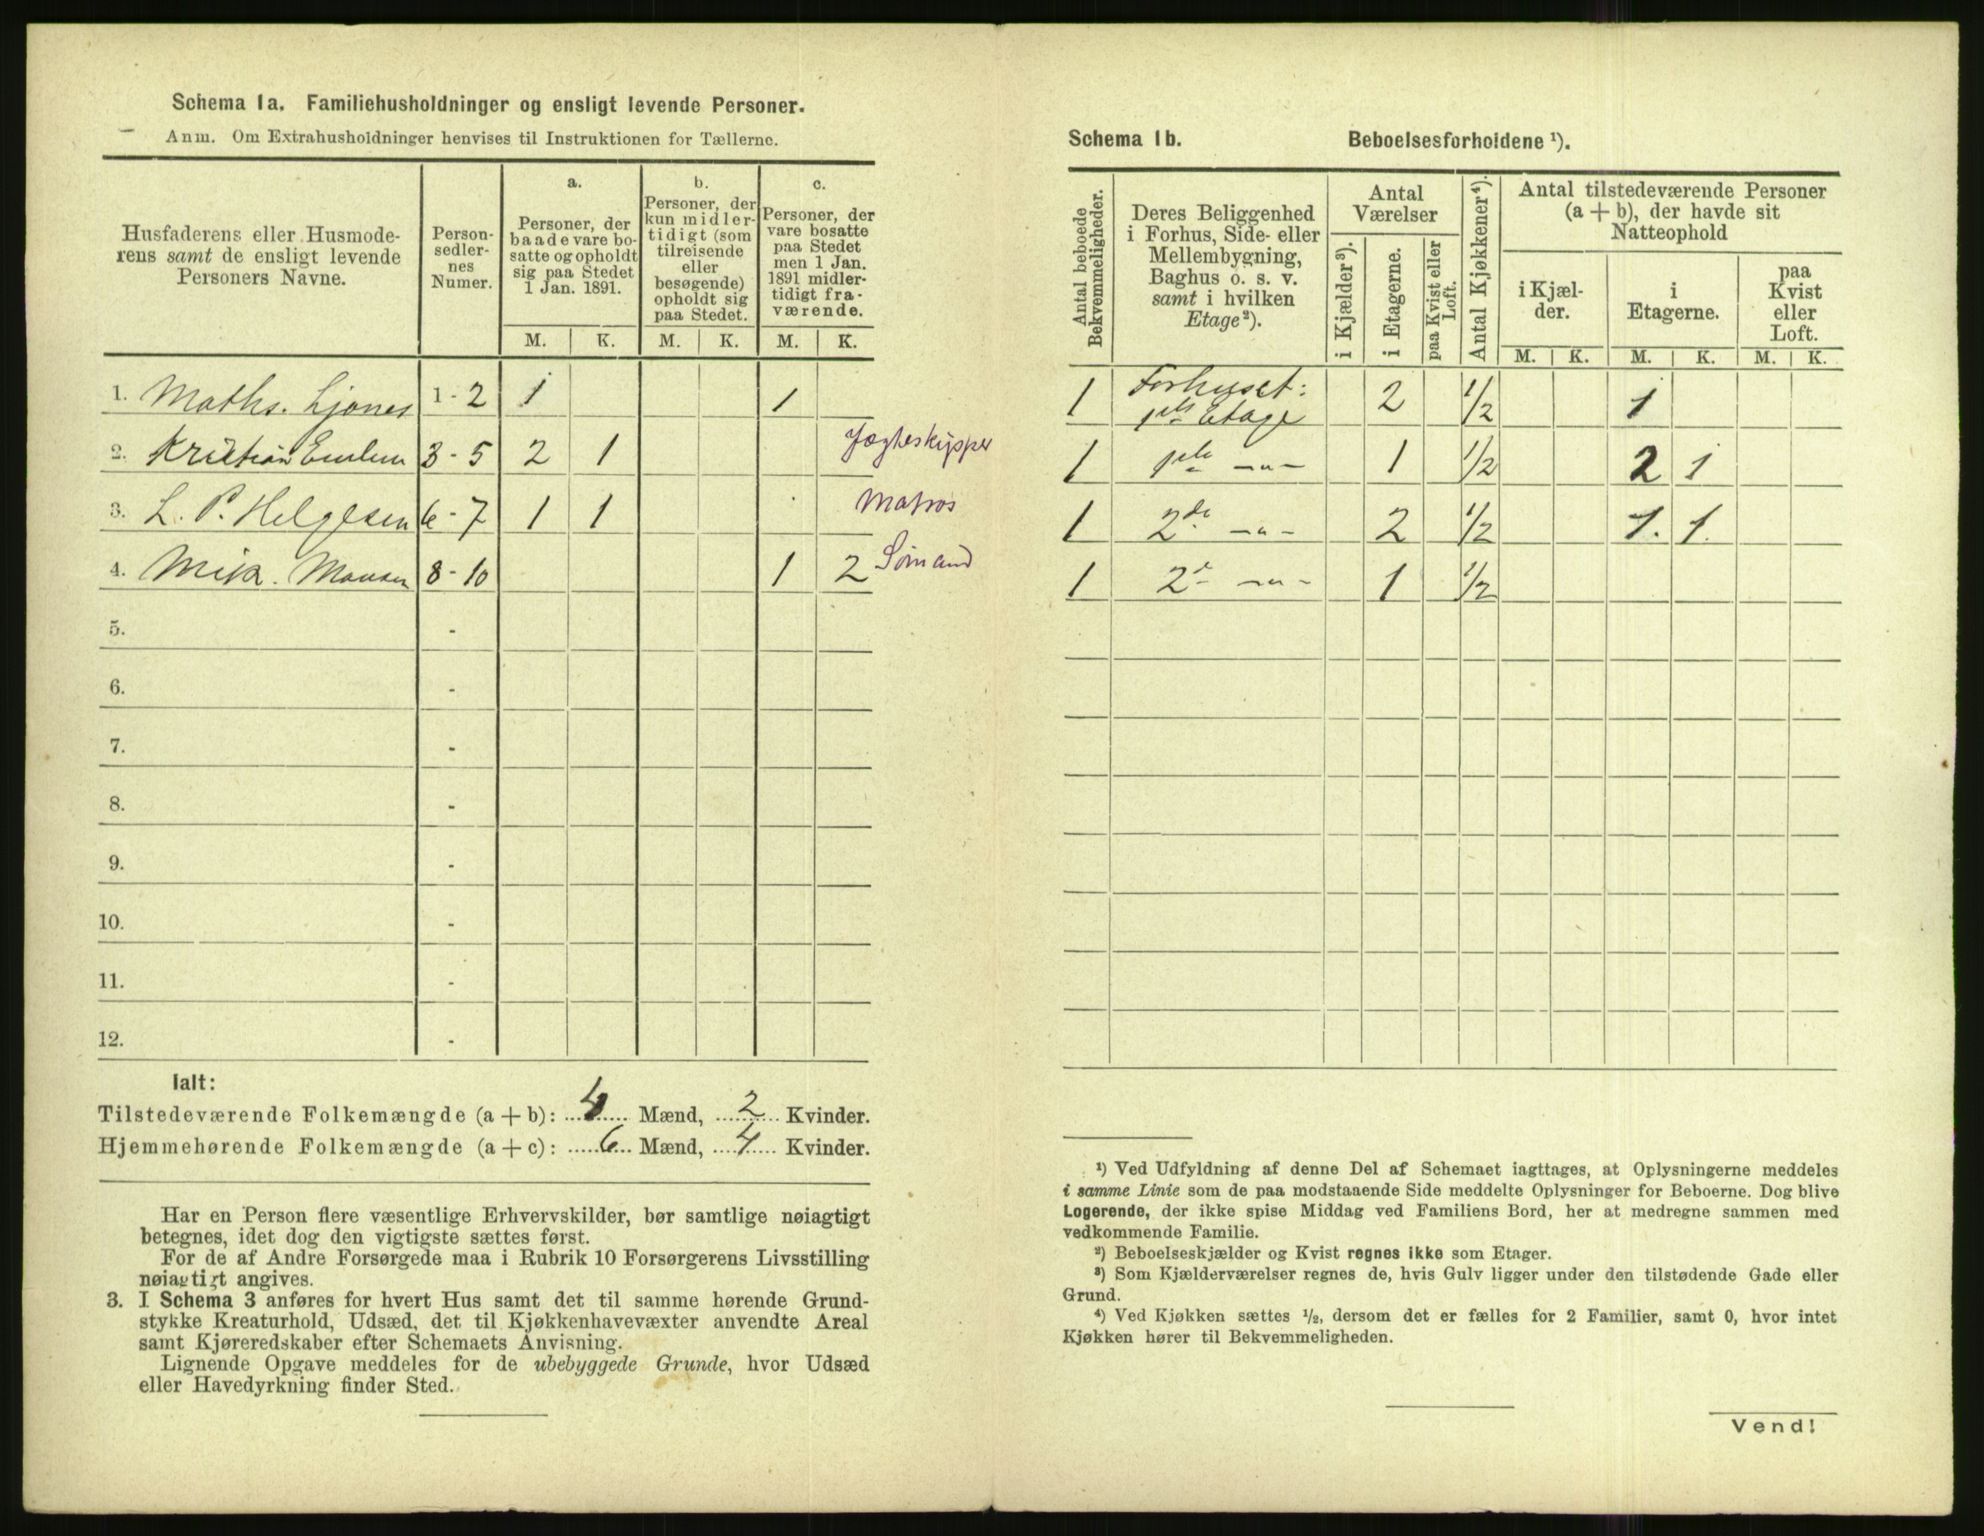 Schema 1a. Familiehusholdninger og ensligt levende Personer.
Anm. Om Extrahusholdninger henvises til Instruktionen for Tællerne.
Husfaderens eller Husmoderens samt de ensligt levende Personers Navne.
Personsedlernes Numer.
a. Personer, der baade vare bosatte og opholdt sig paa Stedet 1 Jan. 1891.
b. Personer, der kun midlertidigt (som tilreisende eller besøgende) opholdt sig paa Stedet.
c. Personer, der vare bosatte paa Stedet men 1 Jan. 1891 midlertidigt fraværende.
M. K. M. K. M. K.
1. Maths. Ljones 1 - 2 1 1
2. Kristian 3 - 5 2 1 Jægteskipper
3. L. P. Helgesen 6 - 7 1 1 Matros
4. Mik. Monsen 8 - 10 1 2 Sømand
5. -
6. -
7. -
8. -
9. -
10. -
11. -
12. -
Ialt:
Tilstedeværende Folkemængde (a + b): 4 Mænd, 2 Kvinder.
Hjemmehørende Folkemængde (a + c): 6 Mænd, 4 Kvinder.
Har en Person flere væsentlige Erhvervskilder, bør samtlige nøiagtigt
betegnes, idet dog den vigtigste sættes først.
For de af Andre Forsørgede maa i Rubrik 10 Forsørgerens Livsstilling
nøiagtigt angives.
3. I Schema 3 anføres for hvert Hus samt det til samme hørende Grund-
stykke Kreaturhold, Udsæd, det til Kjøkkenhavevæxter anvendte Areal
samt Kjøreredskaber efter Schemaets Anvisning.
Lignende Opgave meddeles for de ubebyggede Grunde, hvor Udsæd
eller Havedyrkning finder Sted.
Schema 1b. Beboelsesforholdene ¹).
Antal beboede Bekvemmeligheder.
Deres Beliggenhed i Forhus, Side- eller Mellembygning, Baghus o. s. v. samt i hvilken Etage²).
Antal Værelser
i Kjælder³).
i Etagerne.
paa Kvist eller Loft.
Antal Kjøkkener⁴).
Antal tilstedeværende Personer (a + b), der havde sit Natteophold
i Kjælder.
i Etagerne.
paa Kvist eller Loft.
M. K. M. K. M. K.
1 Forhuset: 1ste Etage 2 1/2 1
1 1ste —„— 1 1/2 2 1
1 2de —„— 2 1/2 1. 1.
1 2de —„— 1 1/2
¹) Ved Udfyldning af denne Del af Schemaet iagttages, at Oplysningerne meddeles
i samme Linie som de paa modstaaende Side meddelte Oplysninger for Beboerne. Dog blive
Logerende, der ikke spise Middag ved Familiens Bord, her at medregne sammen med
vedkommende Familie.
²) Beboelseskjælder og Kvist regnes ikke som Etager.
³) Som Kjælderværelser regnes de, hvis Gulv ligger under den tilstødende Gade eller
Grund.
⁴) Ved Kjøkken sættes ½, dersom det er fælles for 2 Familier, samt 0, hvor intet
Kjøkken hører til Bekvemmeligheden.
Vend!